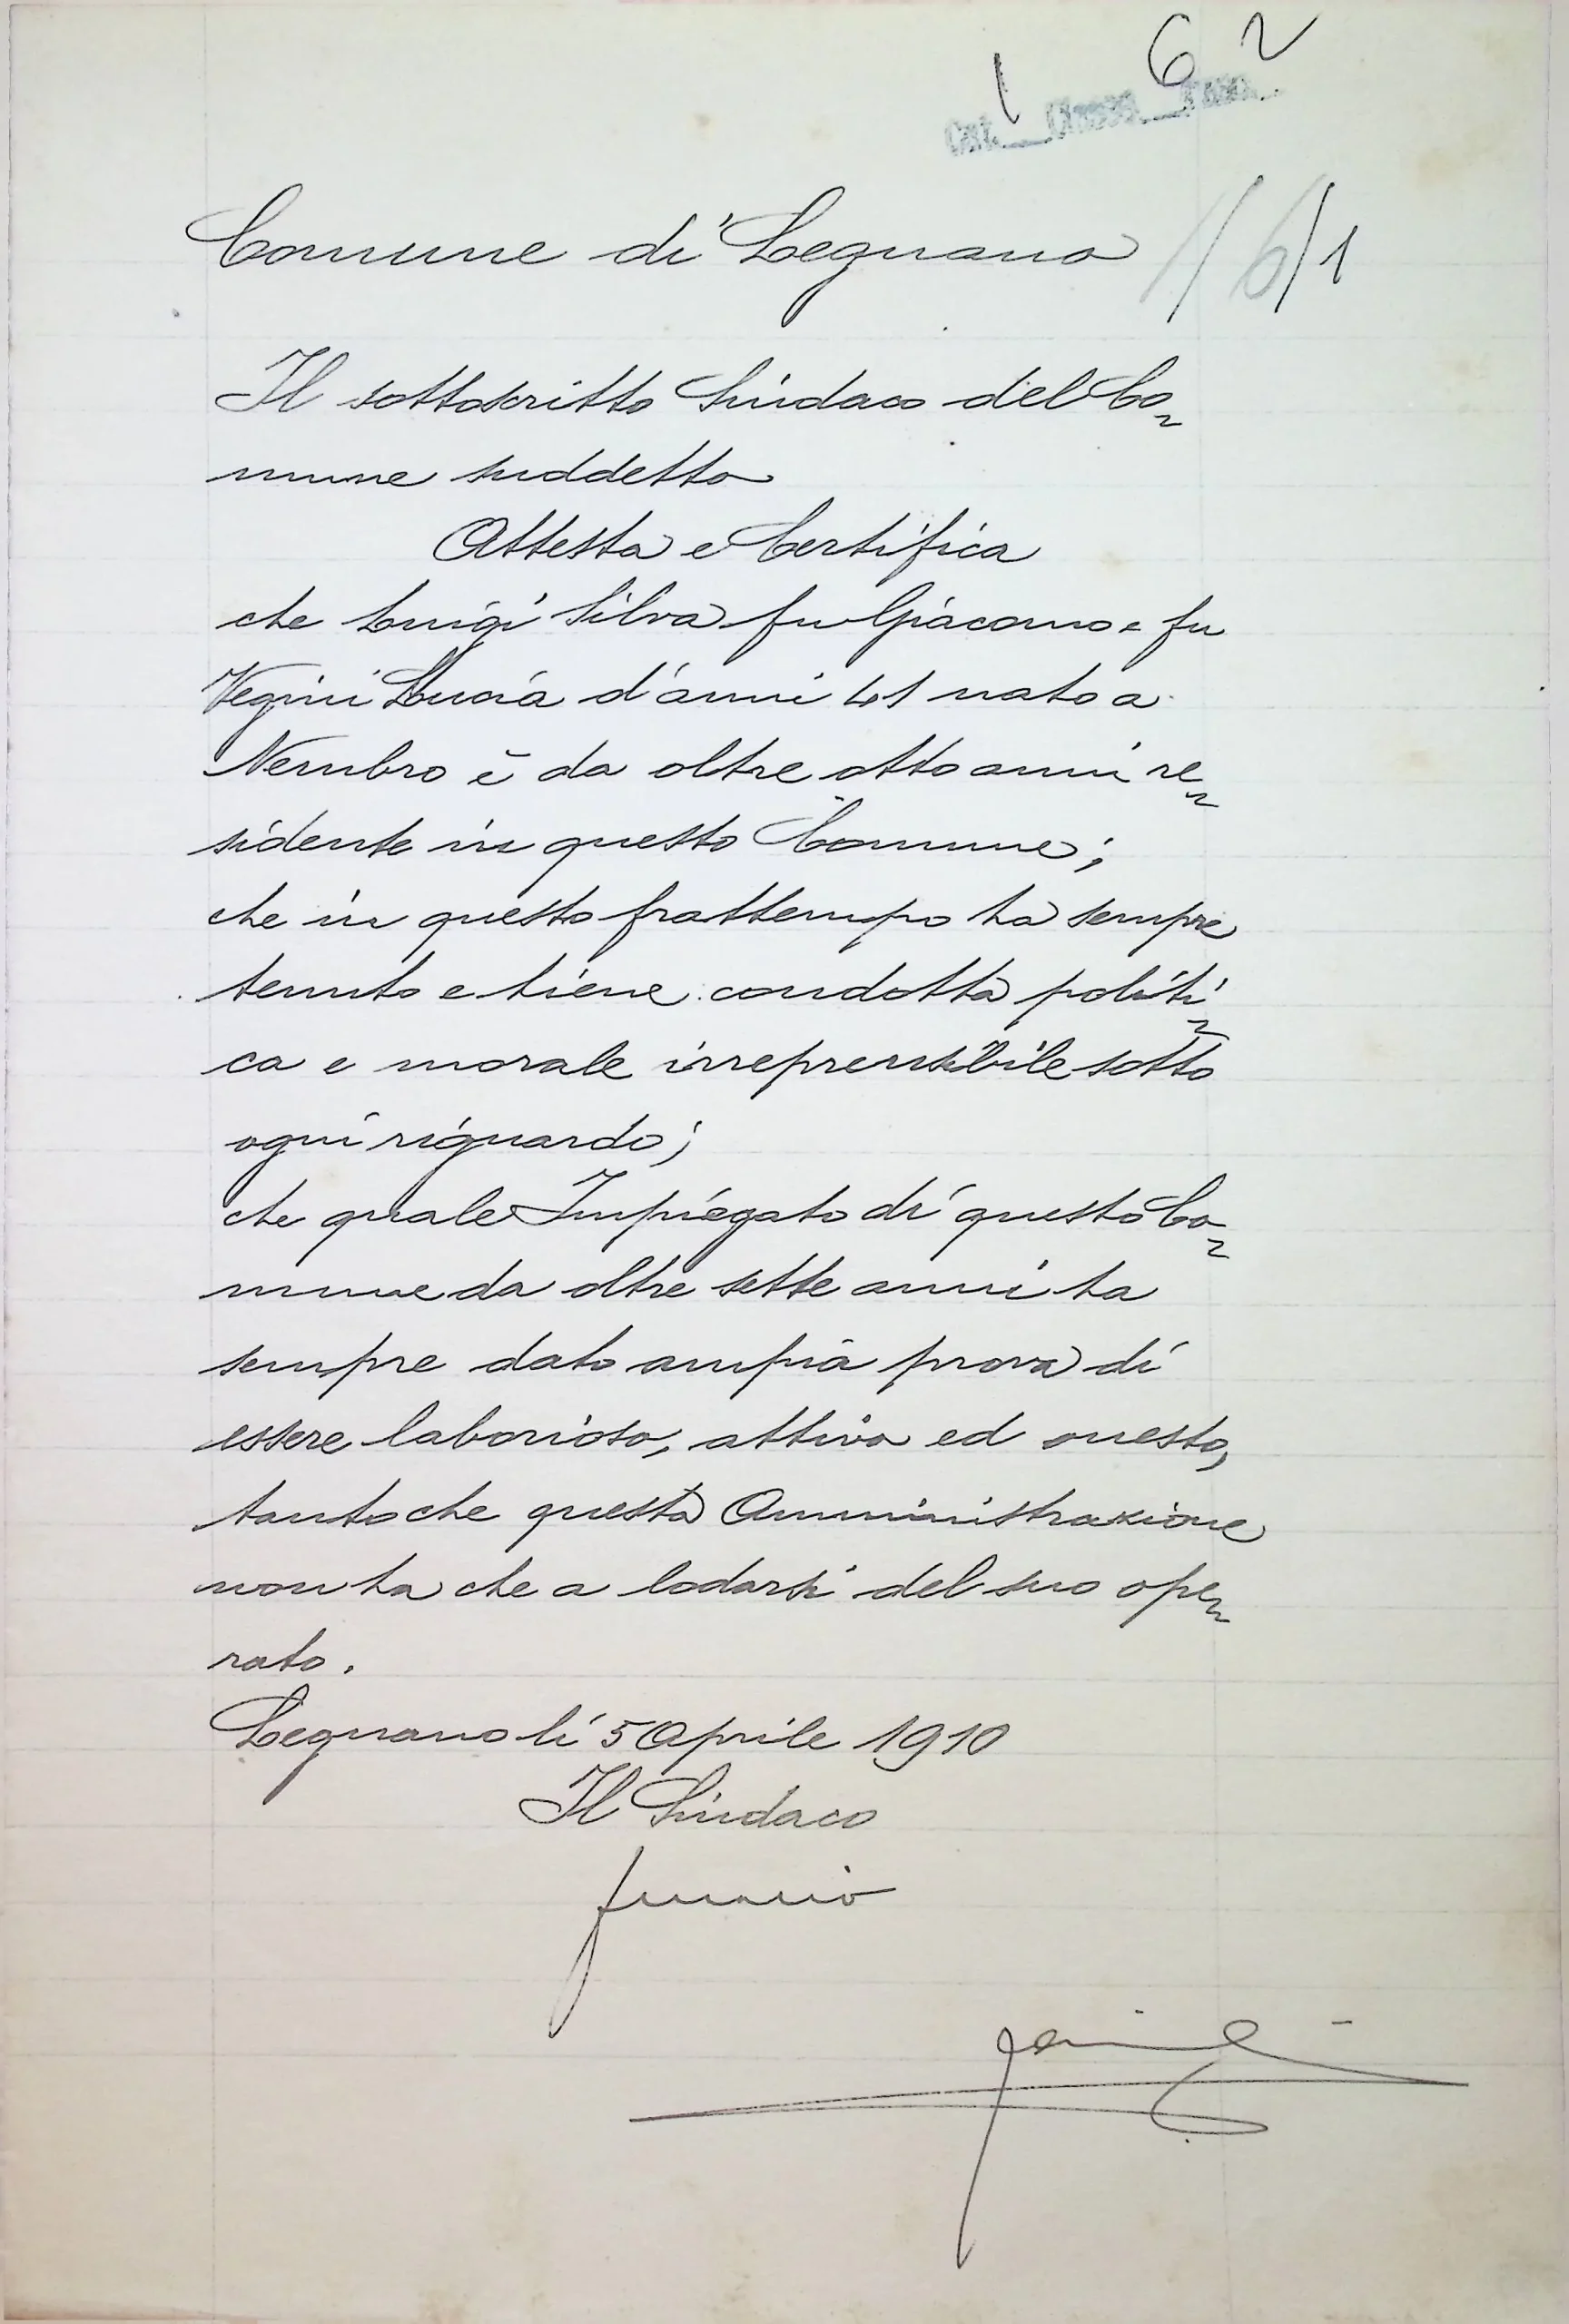 1 6 2
Cat. Classe Fasc.
Comune di Legnano
1/6/1
Il sottoscritto Sindaco del Co-
mune suddetto
Attesta e Certifica
che Luigi Silva fu Giacomo e fu
Vegini Lucia d'anni 41 nato a
Nembro è da oltre otto anni re-
sidente in questo Comune;
che in questo frattempo ha sempre
tenuto e tiene condotta politi-
ca e morale irreprensibile sotto
ogni riguardo;
che quale Impiegato di questo Co-
mune da oltre sette anni ha
sempre dato ampia prova di
essere laborioso, attivo ed onesto,
tanto che questa Amministrazione
non ha che a lodarsi del suo ope-
rato.
Legnano li 5 Aprile 1910
Il Sindaco